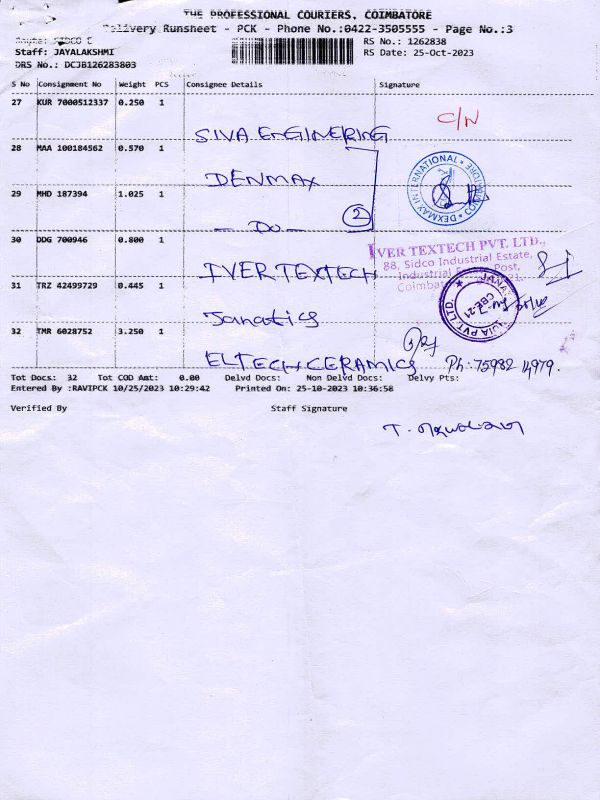 THE PROFESSIONAL COURIERS, COIMBATORE
Delivery Runsheet - PCK - Phone No.:0422-3505555 - Page No.:3
SIDCO E
RS No.: 1262838
Staff: JAYALAKSHMI
RS Date: 25-Oct-2023
DRS No.: DCJB126283803
S No Consignment No Weight PCS Consignee Details Signature
27 KUR 7000512337 0.250 1 SIVA ENGINERING C/N
28 MAA 100184562 0.570 1 DENMAX
DEXMAY INTERNATIONAL COIMBATORE
29 MHD 187394 1.025 1 - Do - 2
30 DDG 700946 0.800 1 IVER TEXTECH
IVER TEXTECH PVT. LTD.,
88, Sidco Industrial Estate,
Industrial Post,
31 TRZ 42499729 0.445 1 Janatics
PVT LTD
32 TMR 6028752 3.250 1 ELTECH CERAMICS Ph: 75982 14979.
Tot Docs: 32 Tot COD Amt: 0.00 Delvd Docs: Non Delvd Docs: Delvy Pts:
Entered By :RAVIPCK 10/25/2023 10:29:42 Printed On: 25-10-2023 10:36:58
Verified By Staff Signature